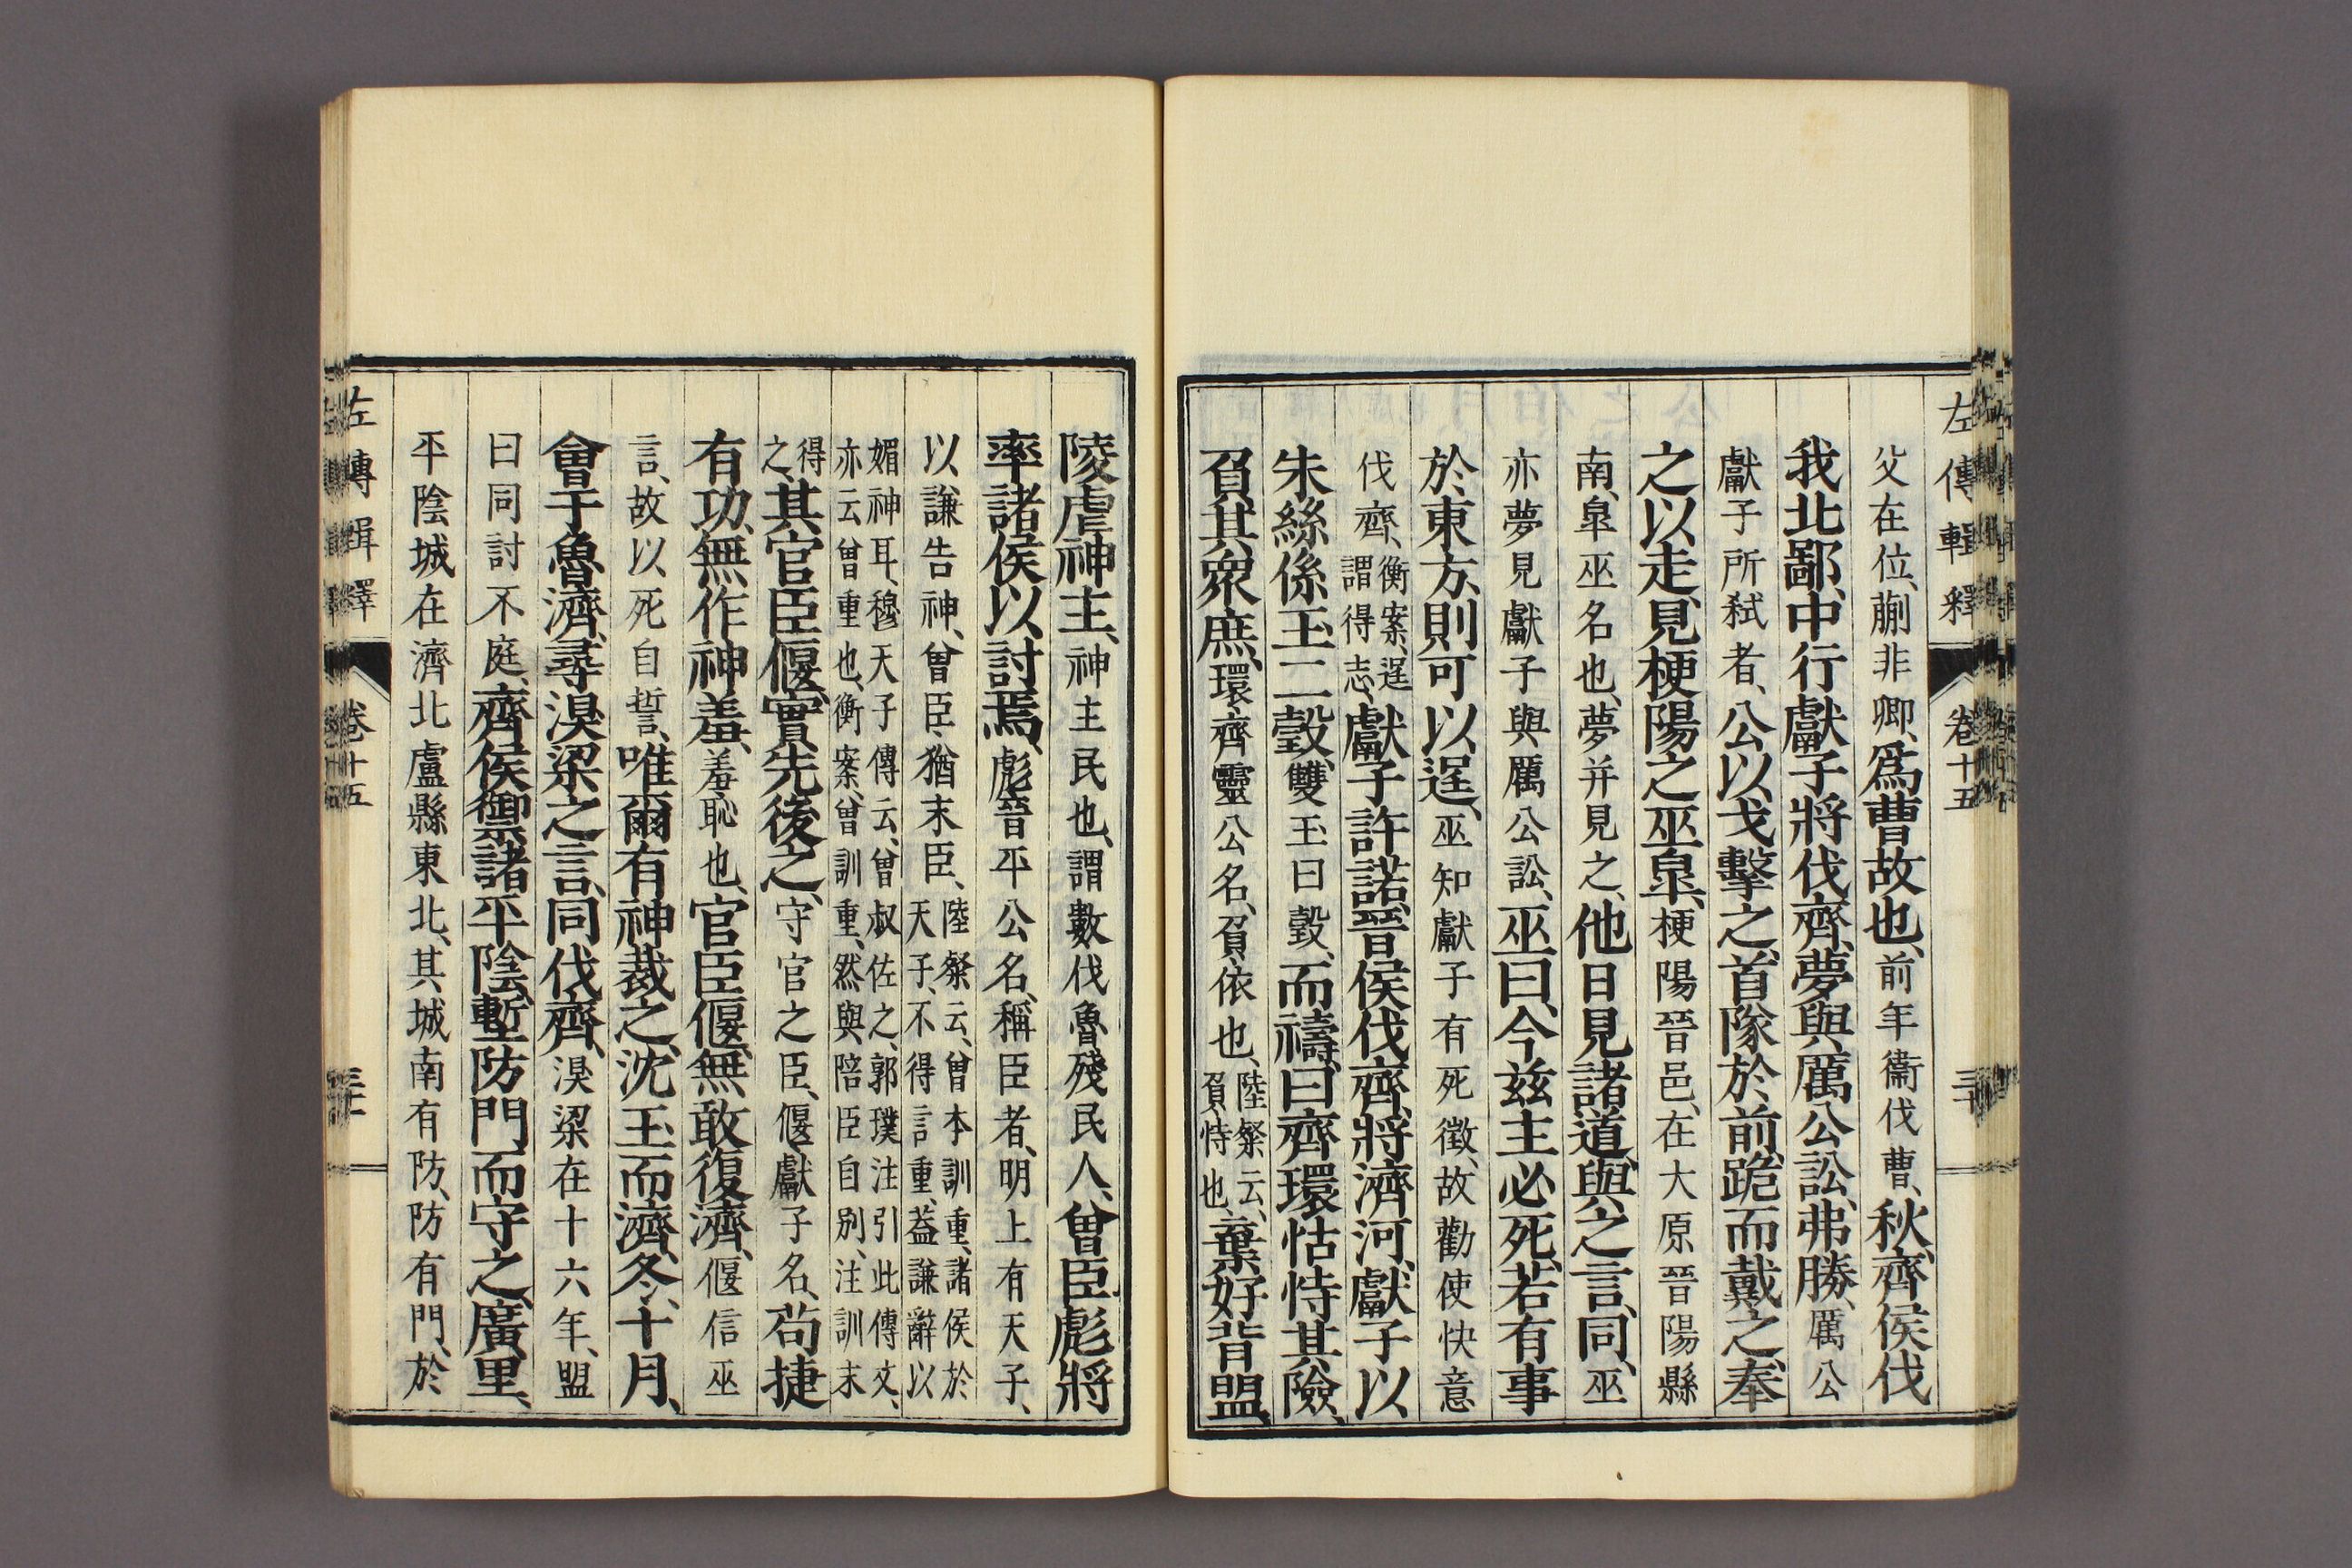 左傳輯釋 卷十五 三十
父在位、蒯非卿、爲曹故也、前年衞伐曹、秋、齊侯伐
我北鄙、中行獻子將伐齊、夢與厲公訟、弗勝、厲公
獻子所弑者、公以戈擊之、首隊於前、跪而戴之、奉
之以走、見梗陽之巫皐、梗陽晉邑、在大原晉陽縣
南、皐巫名也、夢并見之、他日見諸道、與之言、同、巫
亦夢見獻子與厲公訟、巫曰、今兹主必死、若有事
於東方、則可以逞、巫知獻子有死徵、故勸使快意
伐齊、衡案、逞謂得志、獻子許諾、晉侯伐齊、將濟河、獻子以
朱絲係玉二瑴、雙玉曰瑴、而禱、曰、齊環怙恃其險、
負其衆庶、環、齊靈公名、負、依也、陸粲云、負、恃也、棄好背盟、
陵虐神主、神主民也、謂數伐魯殘民人、曾臣彪將
率諸侯以討焉、彪晉平公名、稱臣者、明上有天子、
以謙告神、曾臣、猶末臣、陸粲云、曾本訓重、諸侯於天子、不得言重、蓋謙辭以
媚神耳、穆天子傳云、曾叔佐之、郭璞注引此傳文、亦云曾重也、衡案、曾訓重、然與陪臣自別、注訓末
得之、其官臣偃實先後之、守官之臣、偃、獻子名、苟捷
有功、無作神羞、羞恥也、官臣偃、無敢復濟、偃信巫
言、故以死自誓、唯爾有神裁之、沈玉而濟、冬、十月、
會于魯濟、尋湨梁之言、同伐齊、湨梁在十六年、盟
曰同討不庭、齊侯禦諸平陰、塹防門、而守之、廣里、
平陰城在濟北盧縣東北、其城南有防、防有門、於
左傳輯釋 卷十五